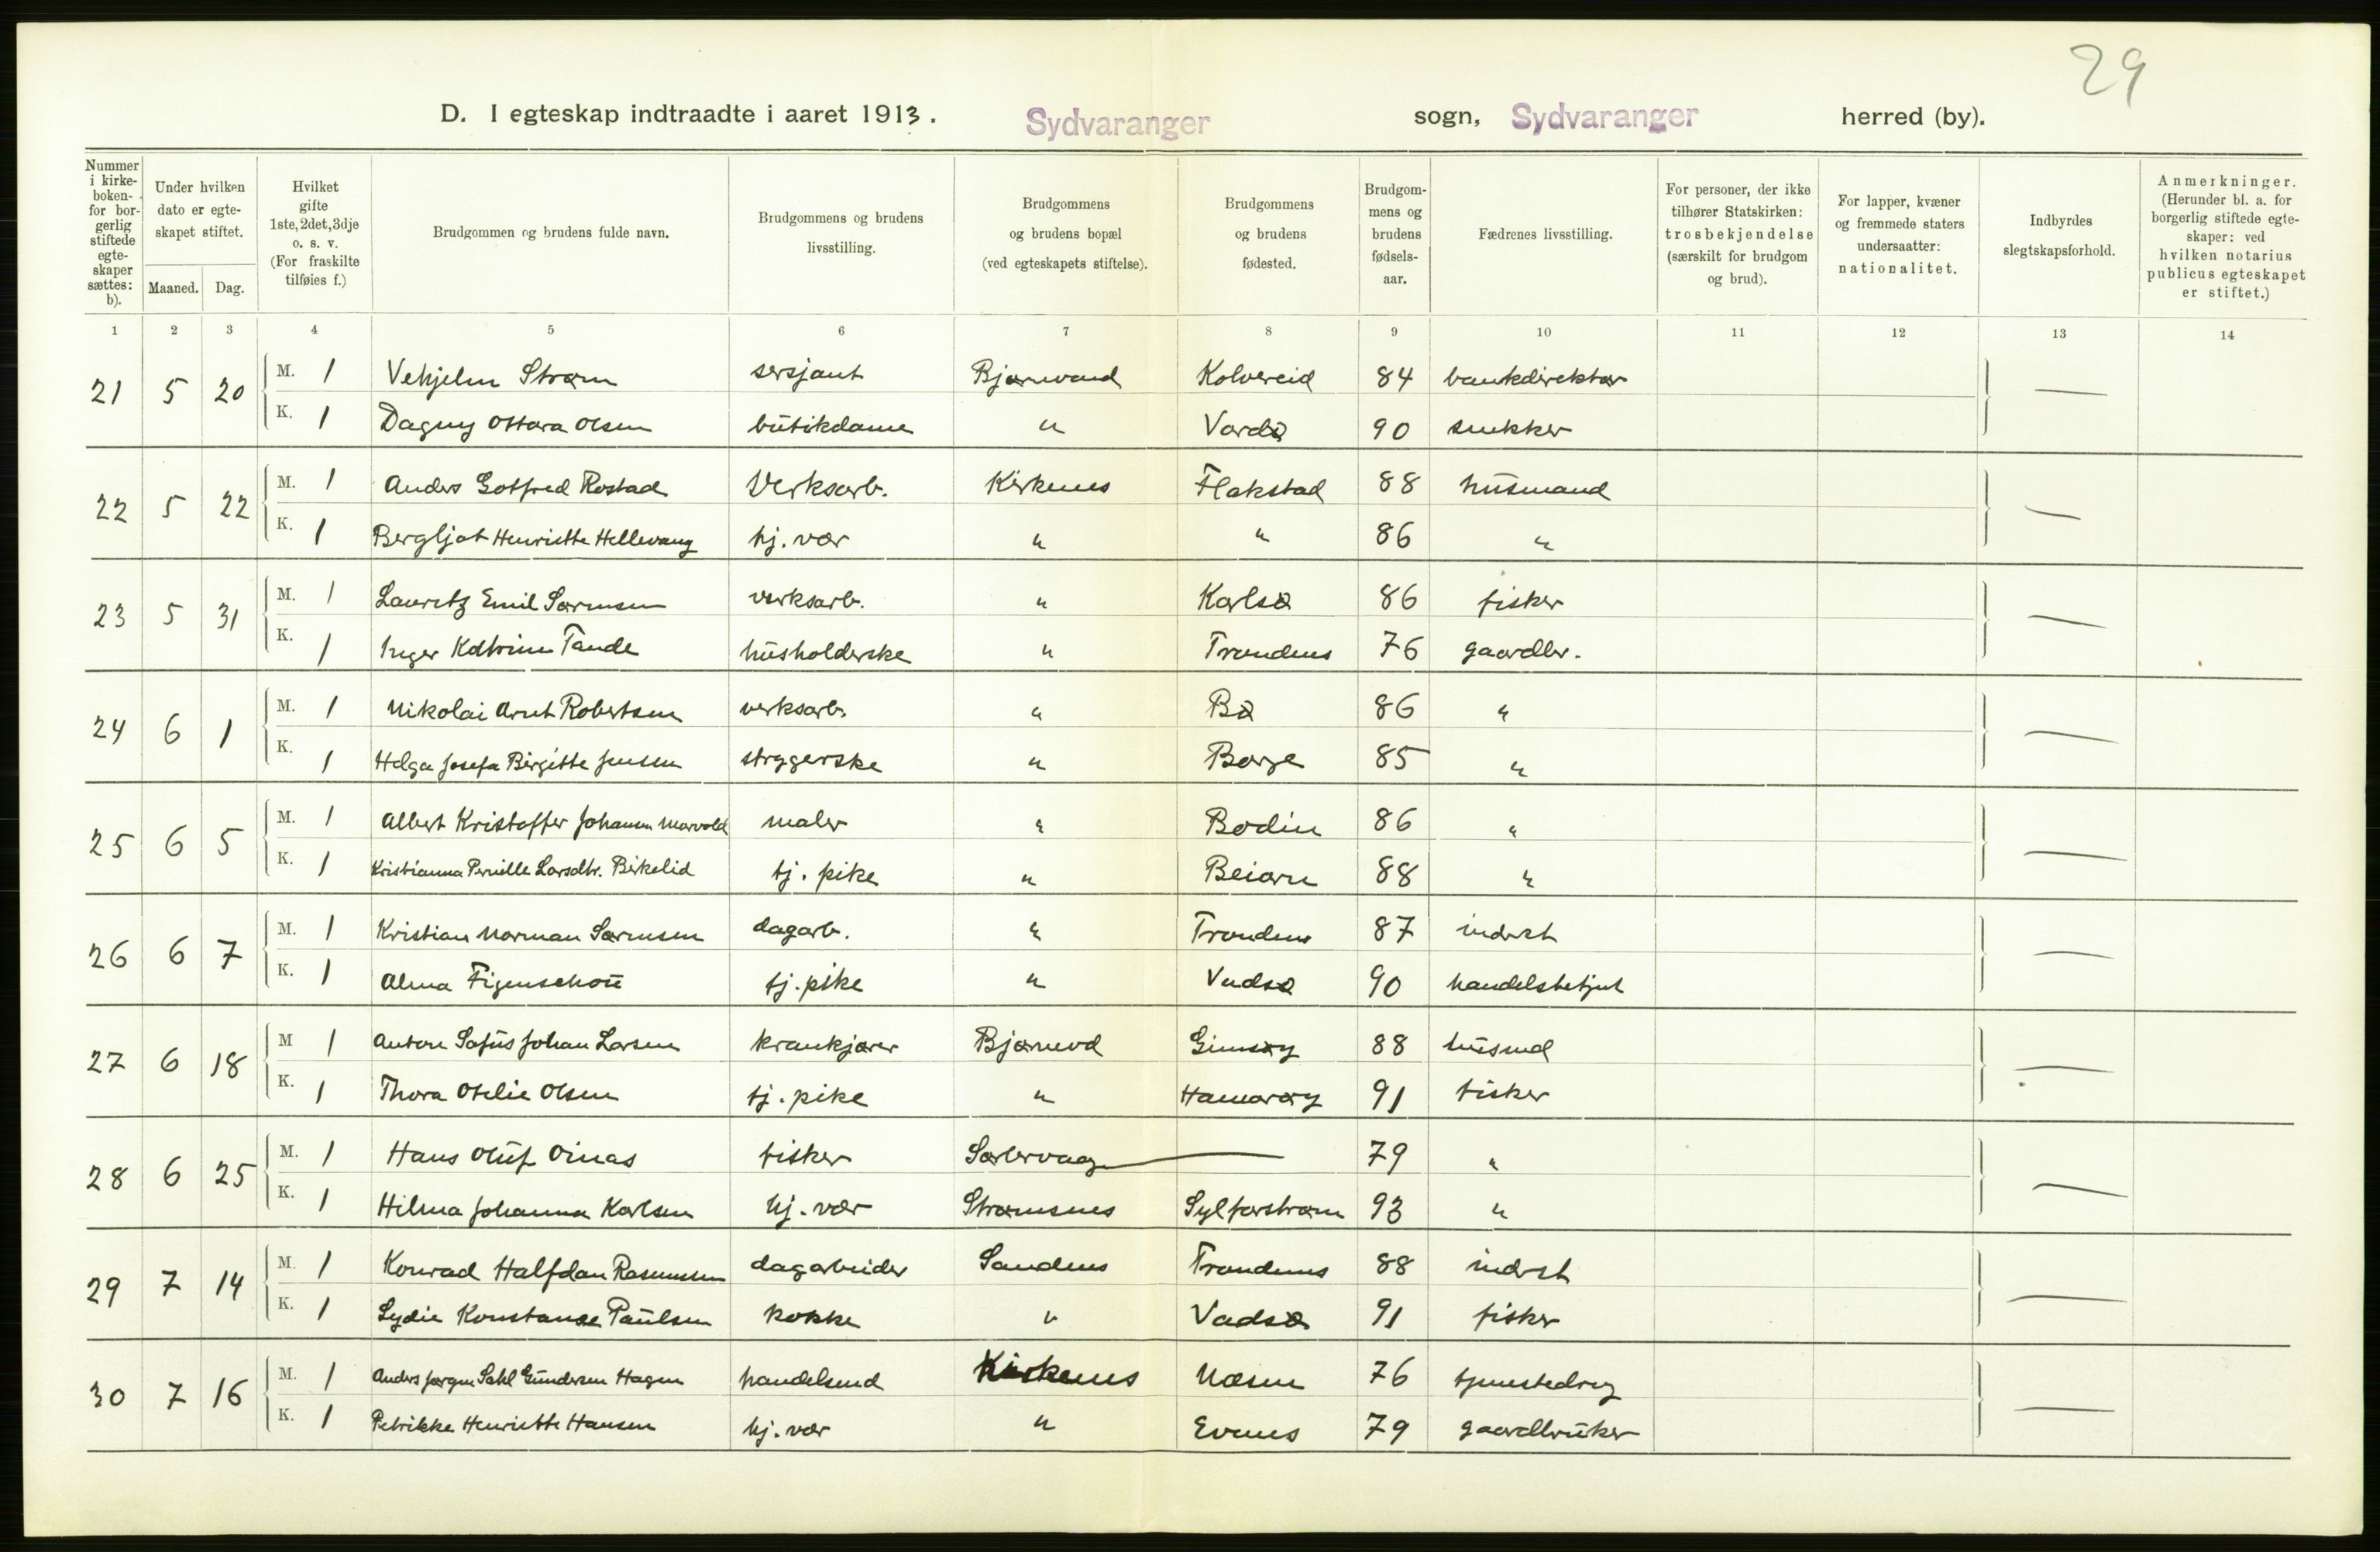 29
D. I egteskap indtraadte i aaret 1913. Sydvaranger sogn, Sydvaranger herred (by).
Nummer i kirke-boken- for bor-gerlig stiftede egte-skaper sættes: b).
Under hvilken dato er egte-skapet stiftet.
Maaned. Dag.
Hvilket gifte 1ste, 2det, 3dje o. s. v. (For fraskilte tilføies f.)
Brudgommen og brudens fulde navn.
Brudgommens og brudens livsstilling.
Brudgommens og brudens bopæl (ved egteskapets stiftelse).
Brudgommens og brudens fødested.
Brudgom-mens og brudens fødsels-aar.
Fædrenes livsstilling.
For personer, der ikke tilhører Statskirken: trosbekjendelse (særskilt for brudgom og brud).
For lapper, kvæner og fremmede staters undersaatter: nationalitet.
Indbyrdes slegtskapsforhold.
Anmerkninger. (Herunder bl. a. for borgerlig stiftede egte-skaper: ved hvilken notarius publicus egteskapet er stiftet.)
1 2 3 4 5 6 7 8 9 10 11 12 13 14
21 5 20 M. 1 Vehjelm Strøm sersjant Bjørnevand Kolvereid 84 bankdirektør —
K. 1 Dagny Ottara Olsen butikdame " Vardø 90 snekker
22 5 22 M. 1 Anders Gotfred Rostad Verksarb. Kirkenes Flakstad 88 husmand —
K. 1 Bergljot Henriette Hellevang hj. vær " " 86 "
23 5 31 M. 1 Lauritz Emil Sørensen verksarb. " Karlsø 86 fisker —
K. 1 Inger Katrine Tande husholderske " Trondenes 76 gaardbr.
24 6 1 M. 1 Nikolai Arnt Robertsen verksarb. " Bø 86 " —
K. 1 Helga Josefa Birgitte Jensen strygerske " Borge 85 "
25 6 5 M. 1 Albert Kristoffer Johansen Marvold maler " Bodin 86 " —
K. 1 Kristianna Pernille Larsdtr. Birkelid tj. pike " Beiarn 88 "
26 6 7 M. 1 Kristian Norman Sørensen dagarb. " Trondenes 87 inderst —
K. 1 Alma Figenschou tj. pike " Vadsø 90 handelsbetjent
27 6 18 M 1 Anton Sofus Johan Larsen krankjører Bjørnevd Gimsøy 88 husmd —
K. 1 Thora Otelie Olsen tj. pike " Hamarøy 91 fisker
28 6 25 M. 1 Hans Oluf Oinas fisker Sørlervaag — 79 " —
K. 1 Hilma Johanna Karlsen hj. vær Strømsnes Sylforstrøm 93 "
29 7 14 M. 1 Konrad Halfdan Rasmussen dagarbeider Sandnes Trondenes 88 inderst —
K. 1 Lydie Konstanse Paulsen kokke " Vadsø 91 fisker
30 7 16 M. 1 Anders Jørgen Sahl Gundersen Hagen handelsmd Kirkenes Næsen 76 —
K. 1 Petrikke Henriette Hansen hj. vær " Evenes 79 gaardbruker